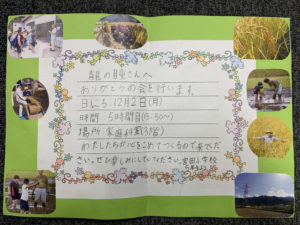 龍の瞳さんへ
ありがとうの会を行います。
日にち 12月2日(月)
時間 5時間目(13:50〜)
場所 家庭科室(3階)
わたしたちが心をこめてつくるので来てくだ
さい。ぜひ楽しみにしていてください。宮田小学校